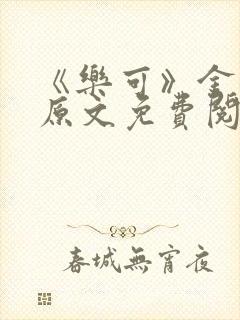 《樂可》全
原文免費閱
春城無宵夜